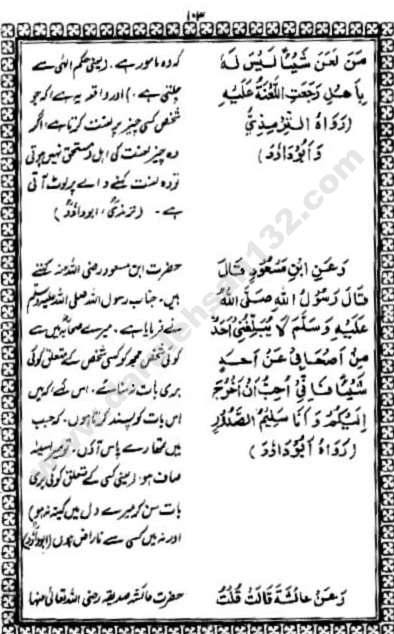 ۱۰۳
مَنْ لَعَنَ شَيْئًا لَيْسَ لَهُ
بِاَهْلٍ رَجَعَتِ اللَّعْنَةُ عَلَيْهِ
(رَوَاهُ التِّرْمِذِيُّ
وَاَبُوْدَاوُدَ)
کہ وہ مامور ہے۔ (یعنی حکم الٰہی سے
چلتی ہے۔) اور واقعہ یہ ہے کہ جو
شخص کسی چیز پر لعنت کرتا ہے اگر
وہ چیز لعنت کی اہل و مستحق نہیں ہوتی
تو وہ لعنت کہنے والے پر لوٹ آتی
ہے۔ (ترمذی، ابوداؤد)
وَعَنِ ابْنِ مَسْعُوْدٍ قَالَ
قَالَ رَسُوْلُ اللهِ صَلَّى اللهُ
عَلَيْهِ وَسَلَّمَ لَا يُبَلِّغُنِيْ اَحَدٌ
مِنْ اَصْحَابِيْ عَنْ اَحَدٍ
شَيْئًا فَاِنِّيْ اُحِبُّ اَنْ اَخْرُجَ
اِلَيْكُمْ وَاَنَا سَلِيْمُ الصَّدْرِ
(رَوَاهُ اَبُوْدَاوُدَ)
حضرت ابن مسعود رضی اللہ عنہ کہتے
ہیں۔ جناب رسول اللہ صلی اللہ علیہ وسلم
نے فرمایا ہے۔ میرے صحابہ میں سے
کوئی شخص مجھ کو کسی شخص کے متعلق کوئی
بری بات نہ سنائے۔ اس لئے کہ میں
اس بات کو پسند کرتا ہوں۔ کہ جب
میں تمہارے پاس آؤں۔ تو میرا سینہ
صاف ہو: (یعنی کسی کے متعلق کوئی بری
بات سن کر میرے دل میں کینہ نہ ہو)
اور نہ میں کسی سے ناراض ہوں (ابوداؤد)
وَعَنْ عَائِشَةَ قَالَتْ قُلْتُ
حضرت عائشہ صدیقہ رضی اللہ تعالیٰ عنہا